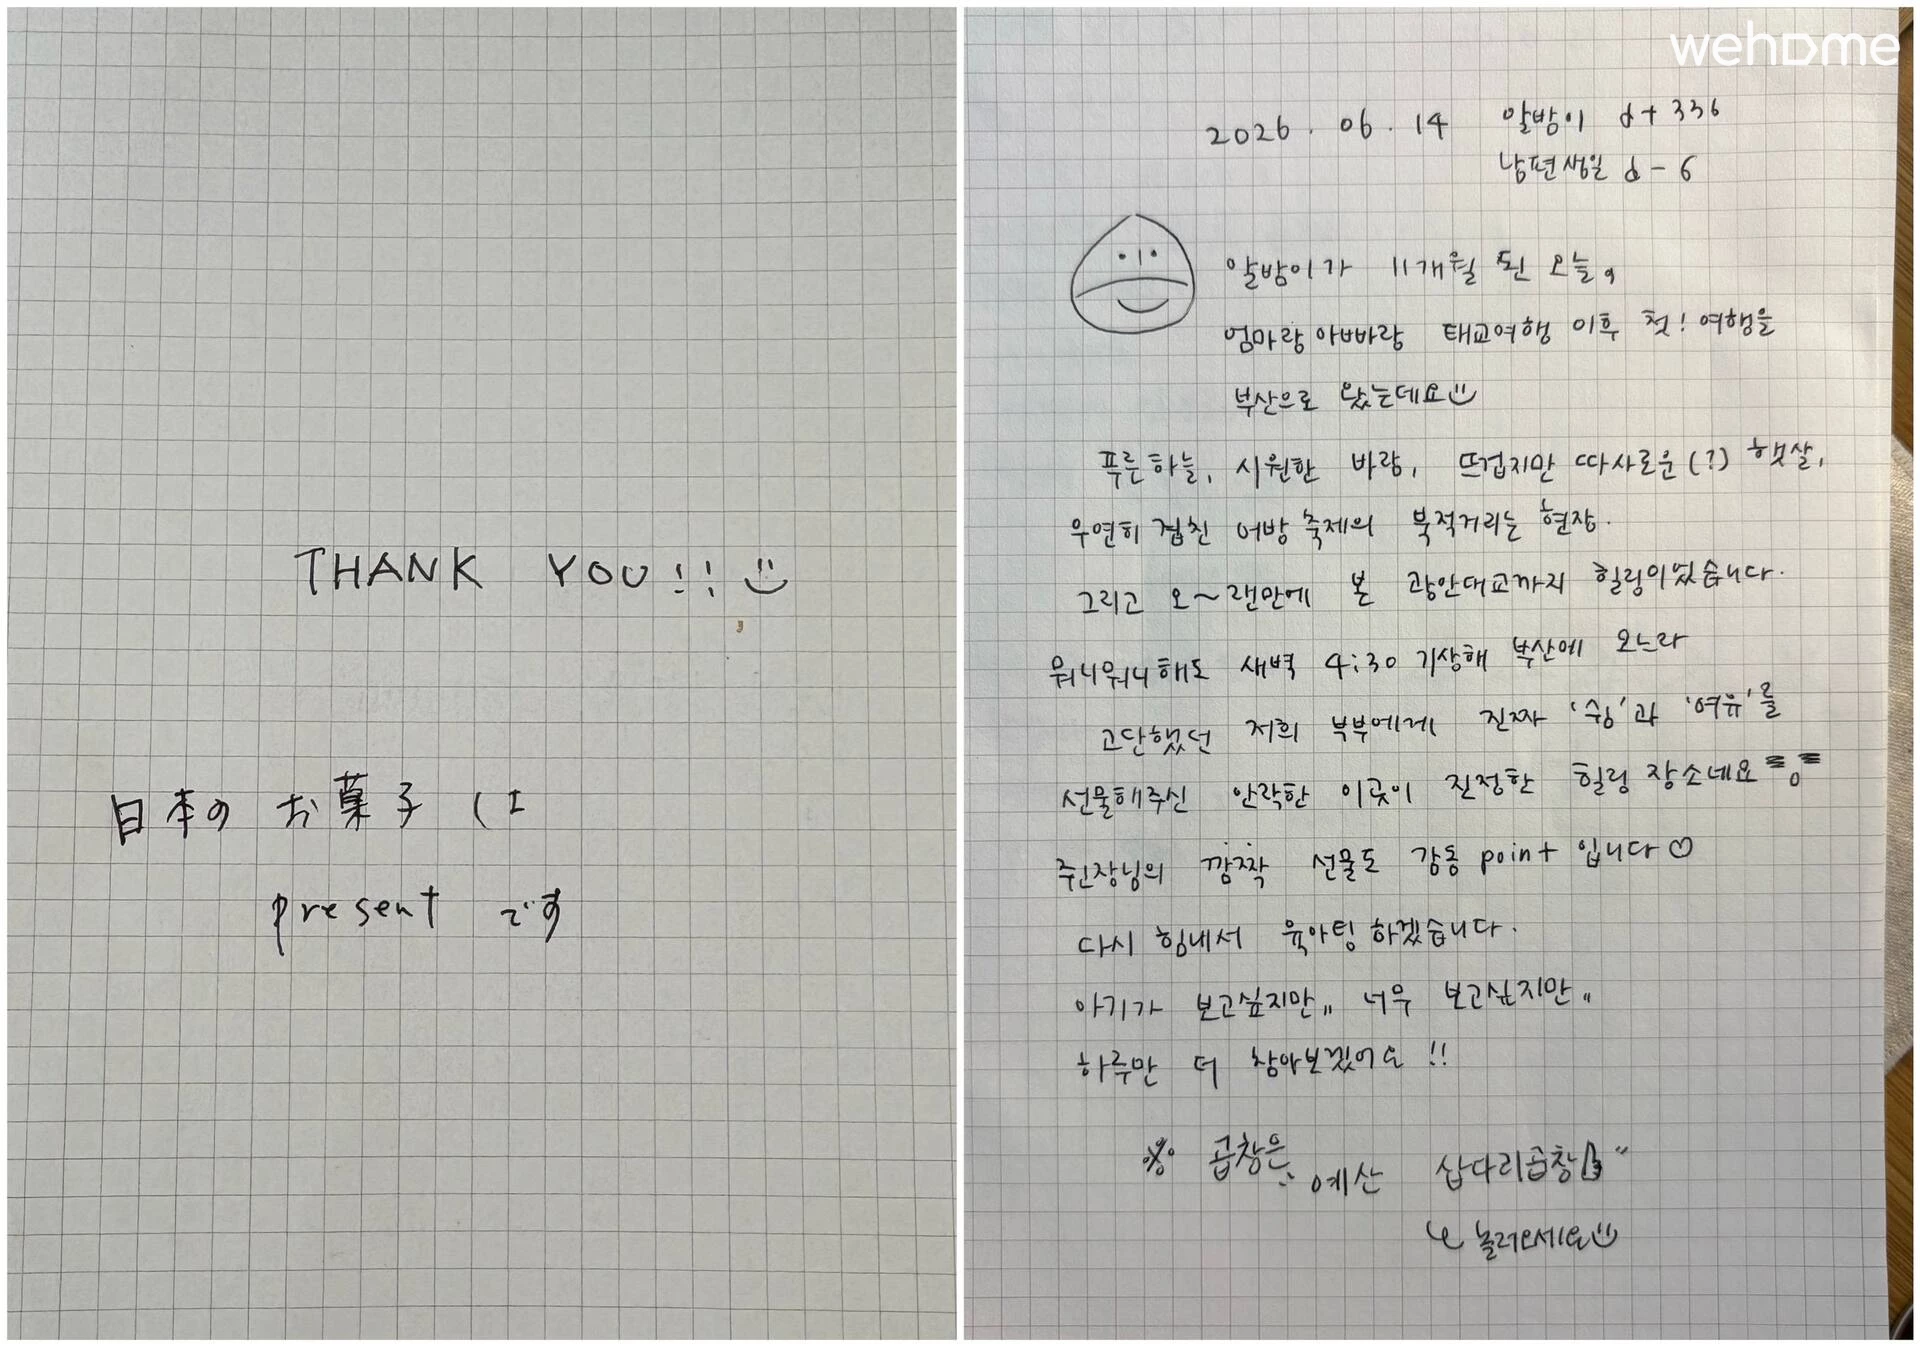 THANK YOU!!
日本の お菓子は
present です
wehome
2026. 06. 14 알밤이 d+336
남편생일 d-6
알밤이가 11개월 된 오늘,
엄마랑 아빠랑 태교여행 이후 첫! 여행을
부산으로 왔는데요
푸른하늘, 시원한 바람, 뜨겁지만 따사로운(?) 햇살,
우연히 겹친 어방축제의 북적거리는 현장.
그리고 오~랜만에 본 광안대교까지 힐링이었습니다.
뭐니뭐니해도 새벽 4:30 기상해 부산에 오느라
고단했던 저희 부부에게 진짜 '쉼'과 '여유'를
선물해주신 안락한 이곳이 진정한 힐링 장소네요
주인장님의 깜짝 선물도 감동 point 입니다♡
다시 힘내서 육아팅 하겠습니다.
아기가 보고싶지만,, 너무 보고싶지만,,
하루만 더 참아보겠어요!!
※ 곱창은 예산 삽다리곱창
놀러오세요